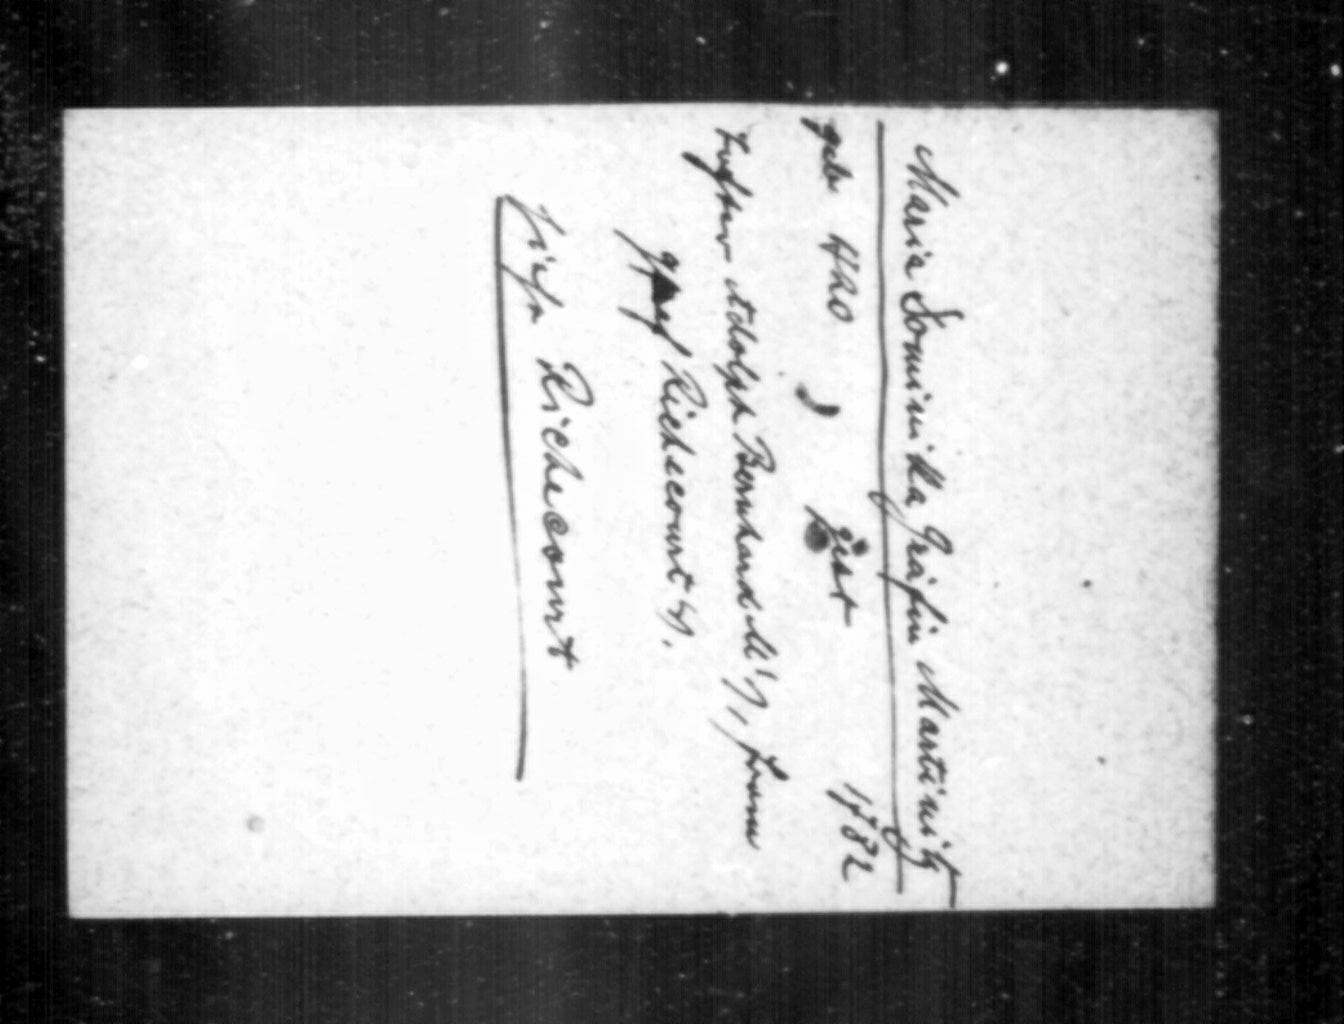 Maria Dominika Gräfin Martinitz
geb 1720 gest 1782
Tochter Adolph Bernhard M's, Frau
Graf Richecourt's.
siehe Richecourt